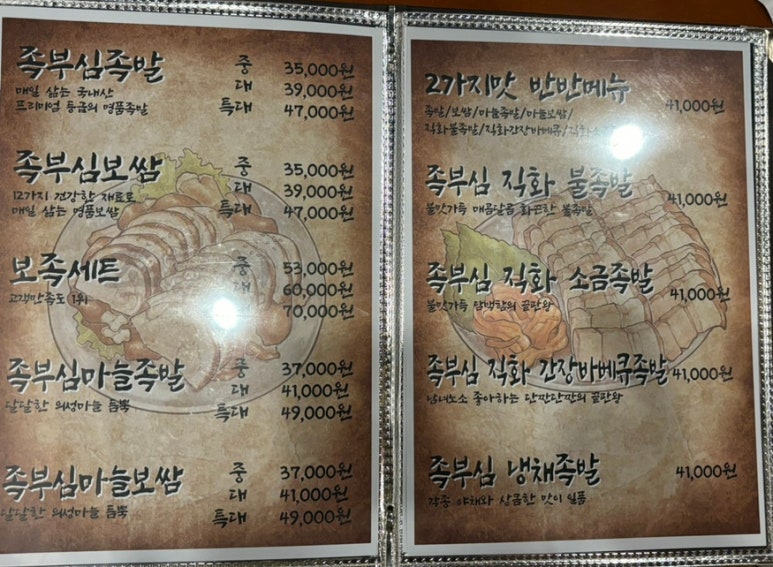 족부심족발 중 35,000원
매일 삶는 국내산 대 39,000원
프리미엄 등급의 명품족발 특대 47,000원
족부심보쌈 중 35,000원
12가지 건강한 재료로 대 39,000원
매일 삶는 명품보쌈 특대 47,000원
보족세트 중 53,000원
고객만족도 1위 대 60,000원
70,000원
족부심마늘족발 중 37,000원
달달한 의성마늘 듬뿍 대 41,000원
특대 49,000원
족부심마늘보쌈 중 37,000원
달달한 의성마늘 듬뿍 대 41,000원
특대 49,000원
2가지맛 반반메뉴 41,000원
족발/보쌈/마늘족발/마늘보쌈/
직화불족발/직화간장바베큐/직화소
족부심 직화 불족발 41,000원
불맛가득 매콤달콤 화끈한 불족발
족부심 직화 소금족발 41,000원
불맛가득 담백함의 끝판왕
족부심 직화 간장바베큐족발 41,000원
남녀노소 좋아하는 단짠단짠의 끝판왕
족부심 냉채족발 41,000원
각종 야채와 상큼한 맛이 일품